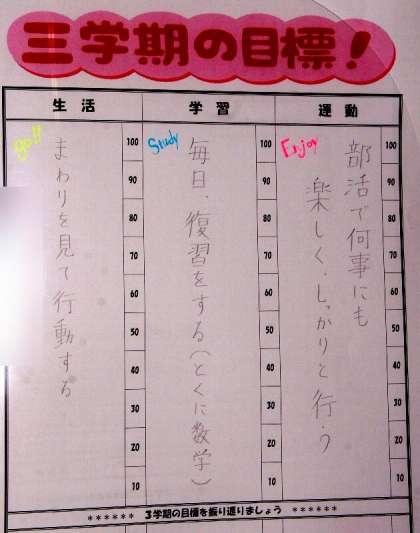 三学期の目標！
生活 学習 運動
go!!
まわりを見て行動する
100
90
80
70
60
50
40
30
20
10
Study
毎日、復習をする(とくに数学)
100
90
80
70
60
50
40
30
20
10
Enjoy
部活で何事にも
楽しく、しっかりと行う
100
90
80
70
60
50
40
30
20
10
****** 3学期の目標を振り返りましょう ******